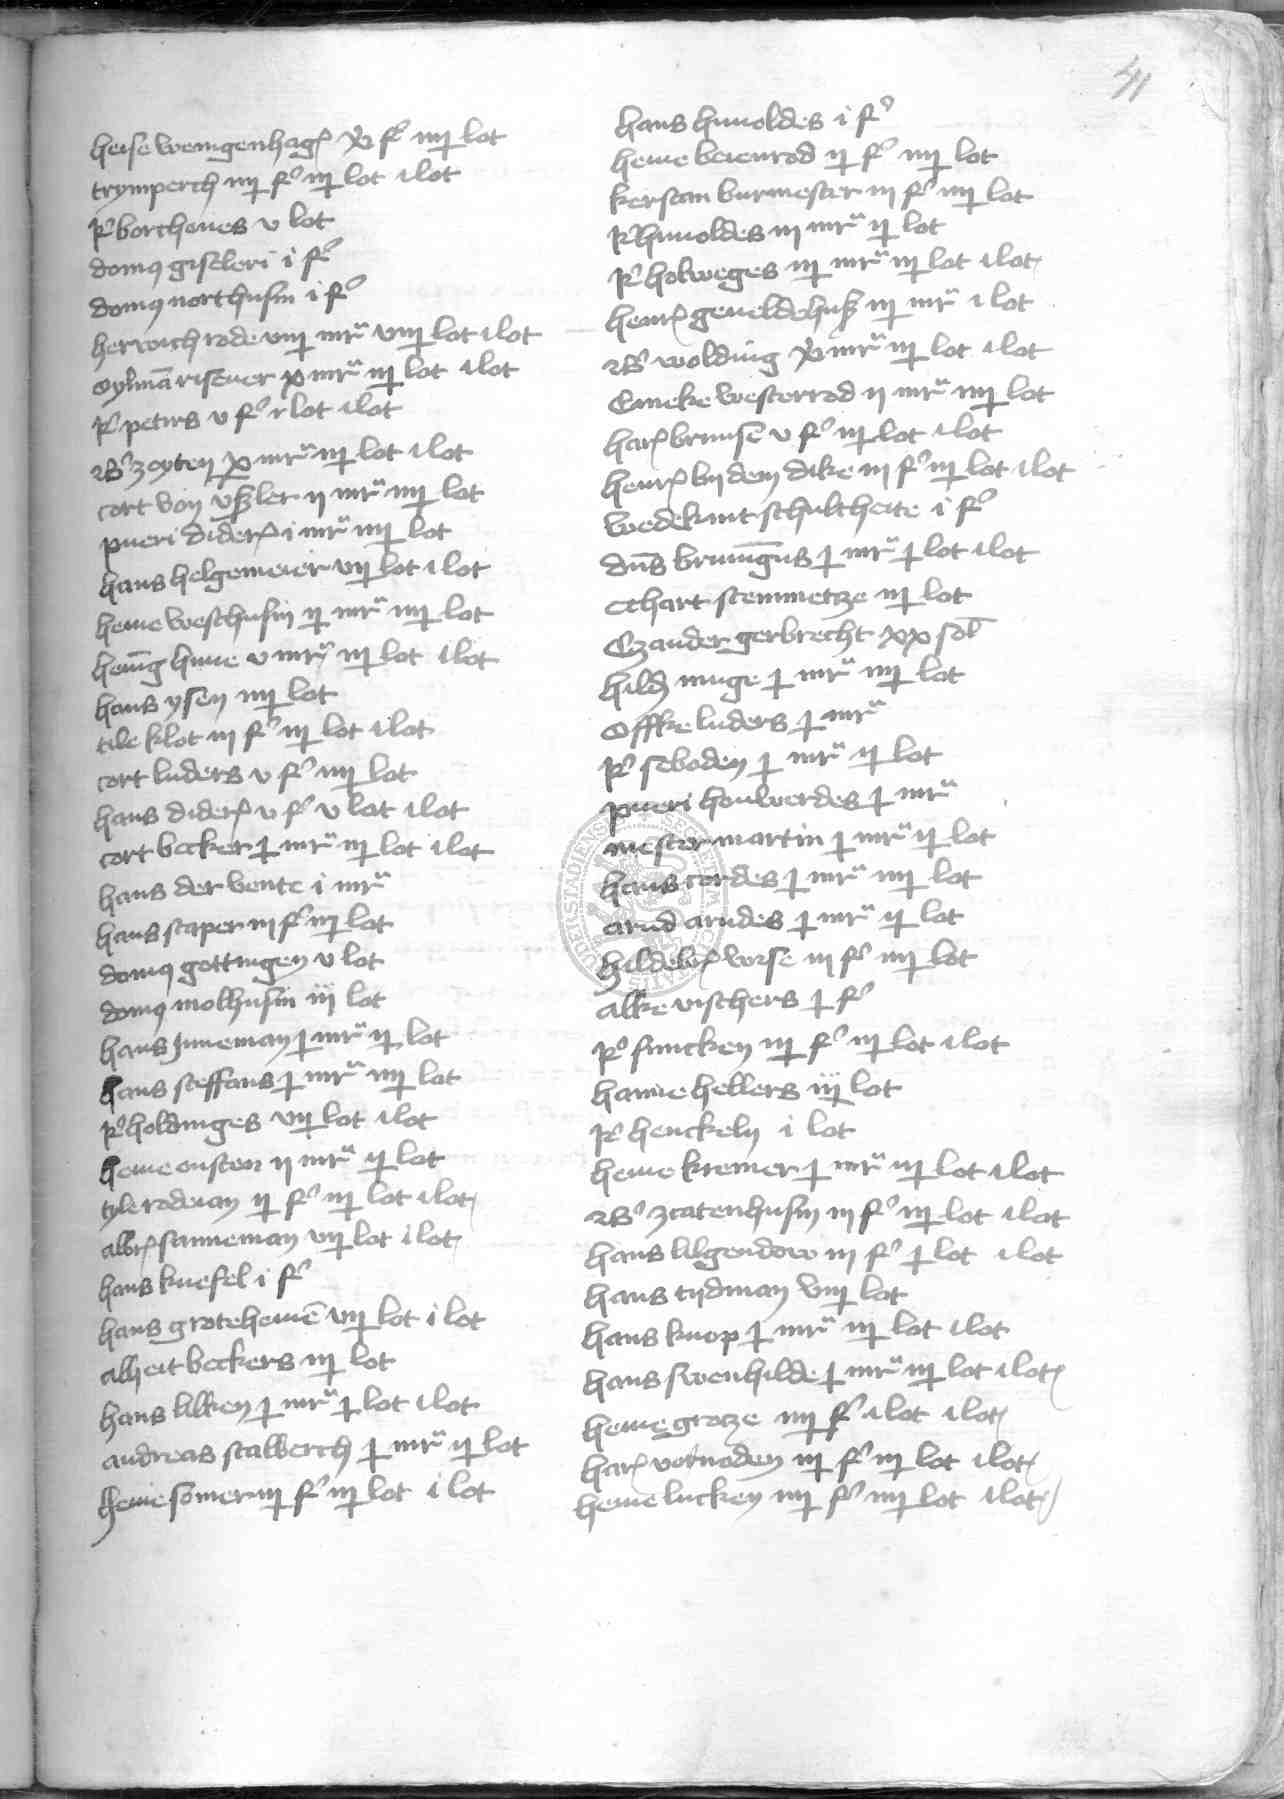 41
heise wenigenhag xv f iiij lot
trymperch iiij f iij lot i lot
R borchones v lot
domus giseleri i f
domus northusin i f
herwich rode viij mr viij lot i lot
oylman risener x mr iij lot i lot
R petirs v f i lot i lot
R zoyten x mr iij lot i lot
cort von uszler ij mr iiij lot
pueri dider i mr iiij lot
hans helgemeier vij lot i lot
heine weschusin ij mr iiij lot
henig hune v mr iij lot i lot
hans ysen iiij lot
tile klot iij f iij lot i lot
cort luders v f iiij lot
hans dider v f v lot i lot
cort becker i mr iij lot i lot
hans der vente i mr
hans scaper iij f iij lot
domus gottingen v lot
domus molhusin iij lot
hans Juneman i mr ij lot
hans steffans i mr iiij lot
R holdinges vij lot i lot
heine ousten ij mr ij lot
tyle rodeman ij f iij lot i lot
albr sanneman vij lot i lot
hans knefel i f
hans grotehenne vij lot i lot
alheit beckers iij lot
hans lilken i mr i lot i lot
andreas stalberch i mr ij lot
heine somer iij f iij lot i lot
hans hunoldes i f
heine beienrod ij f iiij lot
kerstan burmester iij f iiij lot
R hunoldes iij mr ij lot
R holweges iij mr iij lot i lot
henr geneldehusz iij mr i lot
wolding xv mr iij lot i lot
Emeke westerrod ij mr iiij lot
har brunse v f iij lot i lot
henr bii dem dike iij f iij lot i lot
wedekint schultheite i f
dns bruningus i mr i lot i lot
ethart stemmetze iij lot
Ezander gerbrecht xx sol
hild muge i mr iiij lot
offke luders i mr
R seboden i mr ij lot
pueri houwerdes i mr
mester martin i mr ij lot
hans cordes i mr iiij lot
arnd arndes i mr ij lot
hildebr vorse iij f iiij lot
alke vischers i f
R suncken iij f iij lot i lot
hanne hellers iij lot
R henckeln i lot
heine kremer i mr iij lot i lot
zcatenhusin iij f iij lot i lot
hans lilgendow iij f i lot i lot
hans tydman viij lot
hans knop i mr iij lot i lot
hans swenhilde i mr iij lot i lot
heine grotze iiij f i lot i lot
har vornoden iij f iij lot i lot
heine lucken iiij f iiij lot i lot